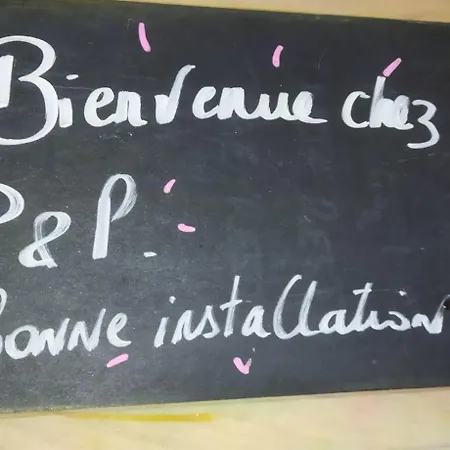 Bienvenue chez
P & P.
Bonne installation